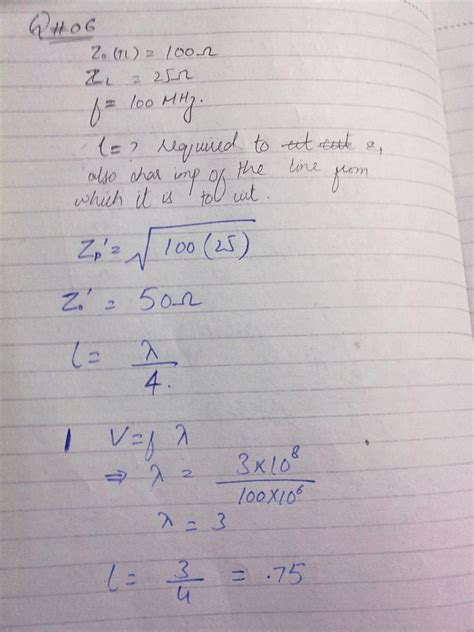 Q#06
Z₀(TL) = 100Ω
Z_L = 25Ω
f = 100 MHz.
l = ? required to cut cut &,
also char imp of the line from
which it is to cut.
Z₀' = √100(25)
Z₀' = 50Ω
l = λ/4.
1 V = f λ
⇒ λ = 3×10⁸/100×10⁶
λ = 3
l = 3/4 = .75